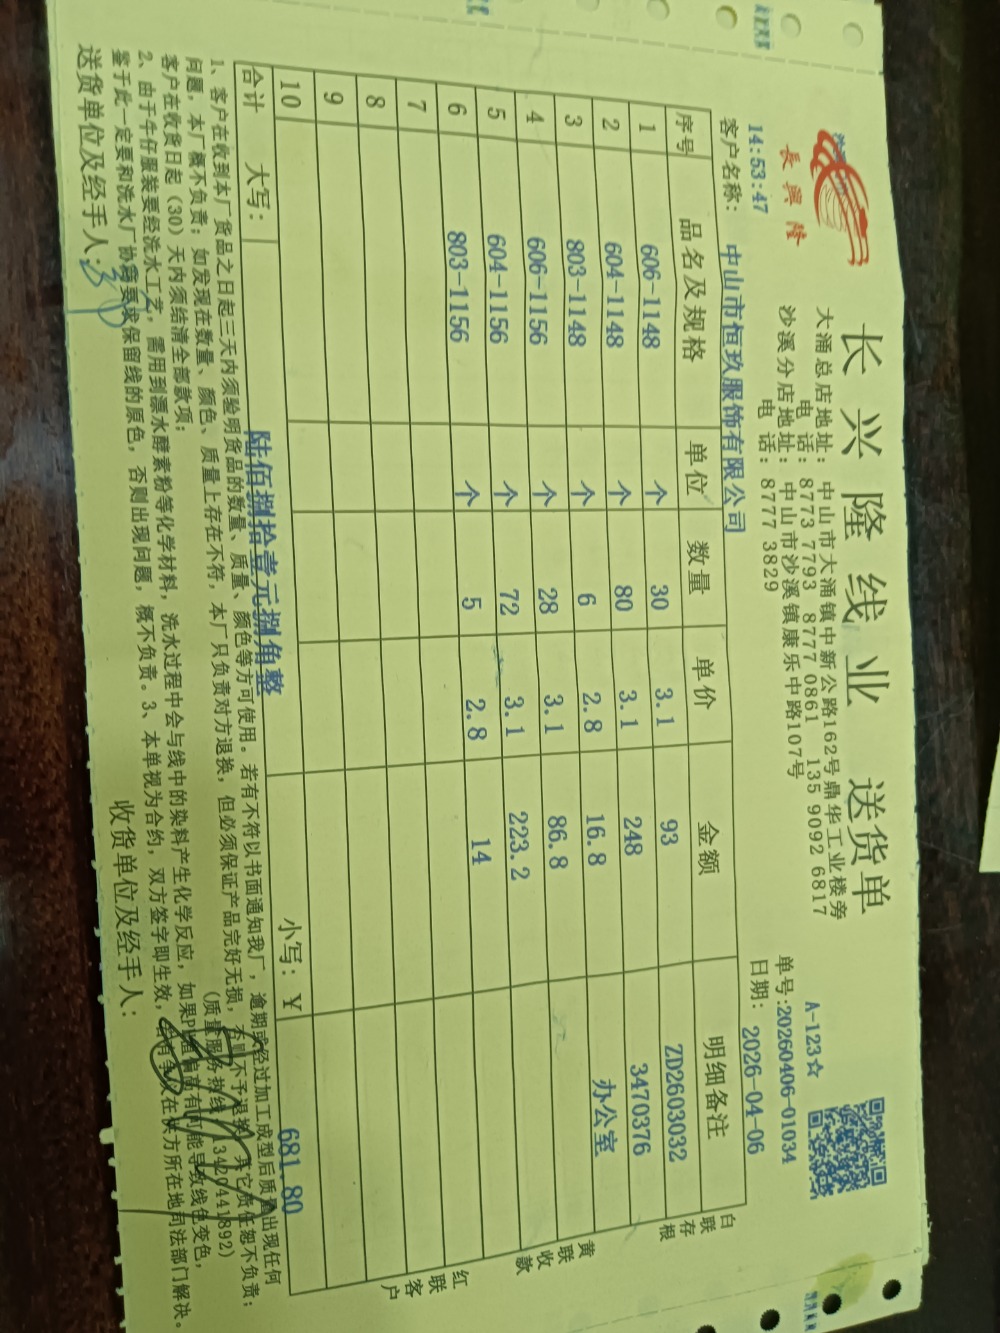 長興隆
长兴隆线业 送货单
大涌总店地址：中山市大涌镇中新公路162号鼎华工业楼旁
电 话：8773 7793 8777 0861 135 9092 6817
沙溪分店地址：中山市沙溪镇康乐中路107号
电 话：8777 3829
A-123☆
单号:20260406-01034
14:53:47
日期： 2026-04-06
客户名称： 中山市恒玖服饰有限公司
序号 品名及规格 单位 数量 单价 金额 明细备注
1 606-1148 个 30 3.1 93 ZD2603032
2 604-1148 个 80 3.1 248 3470376
3 803-1148 个 6 2.8 16.8 办公室
4 606-1156 个 28 3.1 86.8
5 604-1156 个 72 3.1 223.2
6 803-1156 个 5 2.8 14
7
8
9
10
合计 大写： 陆佰捌拾壹元捌角整 小写：￥ 681.80
白联存根
黄联收款
红联客户
1、客户在收到本厂货品之日起三天内须验明货品的数量、质量、颜色等方可使用。若有不符以书面通知我厂，逾期或经过加工成型后质量出现任何
问题，本厂概不负责；如发现在数量、颜色、质量上存在不符，本厂只负责对方退换，但必须保证产品完好无损，否则不予退换，其它责任恕不负责；
客户在收货日起（30）天内须结清全部款项； （质量服务热线：13420441892）
2、由于牛仔服装要经洗水工艺，需用到漂水酵素粉等化学材料，洗水过程中会与线中的染料产生化学反应，如果PH值偏高有可能导致线色变色，
鉴于此一定要和洗水厂协商要求保留线的原色，否则出现问题，概不负责。3、本单视为合约，双方签字即生效，若有争议在供方所在地司法部门解决。
送货单位及经手人： 收货单位及经手人：